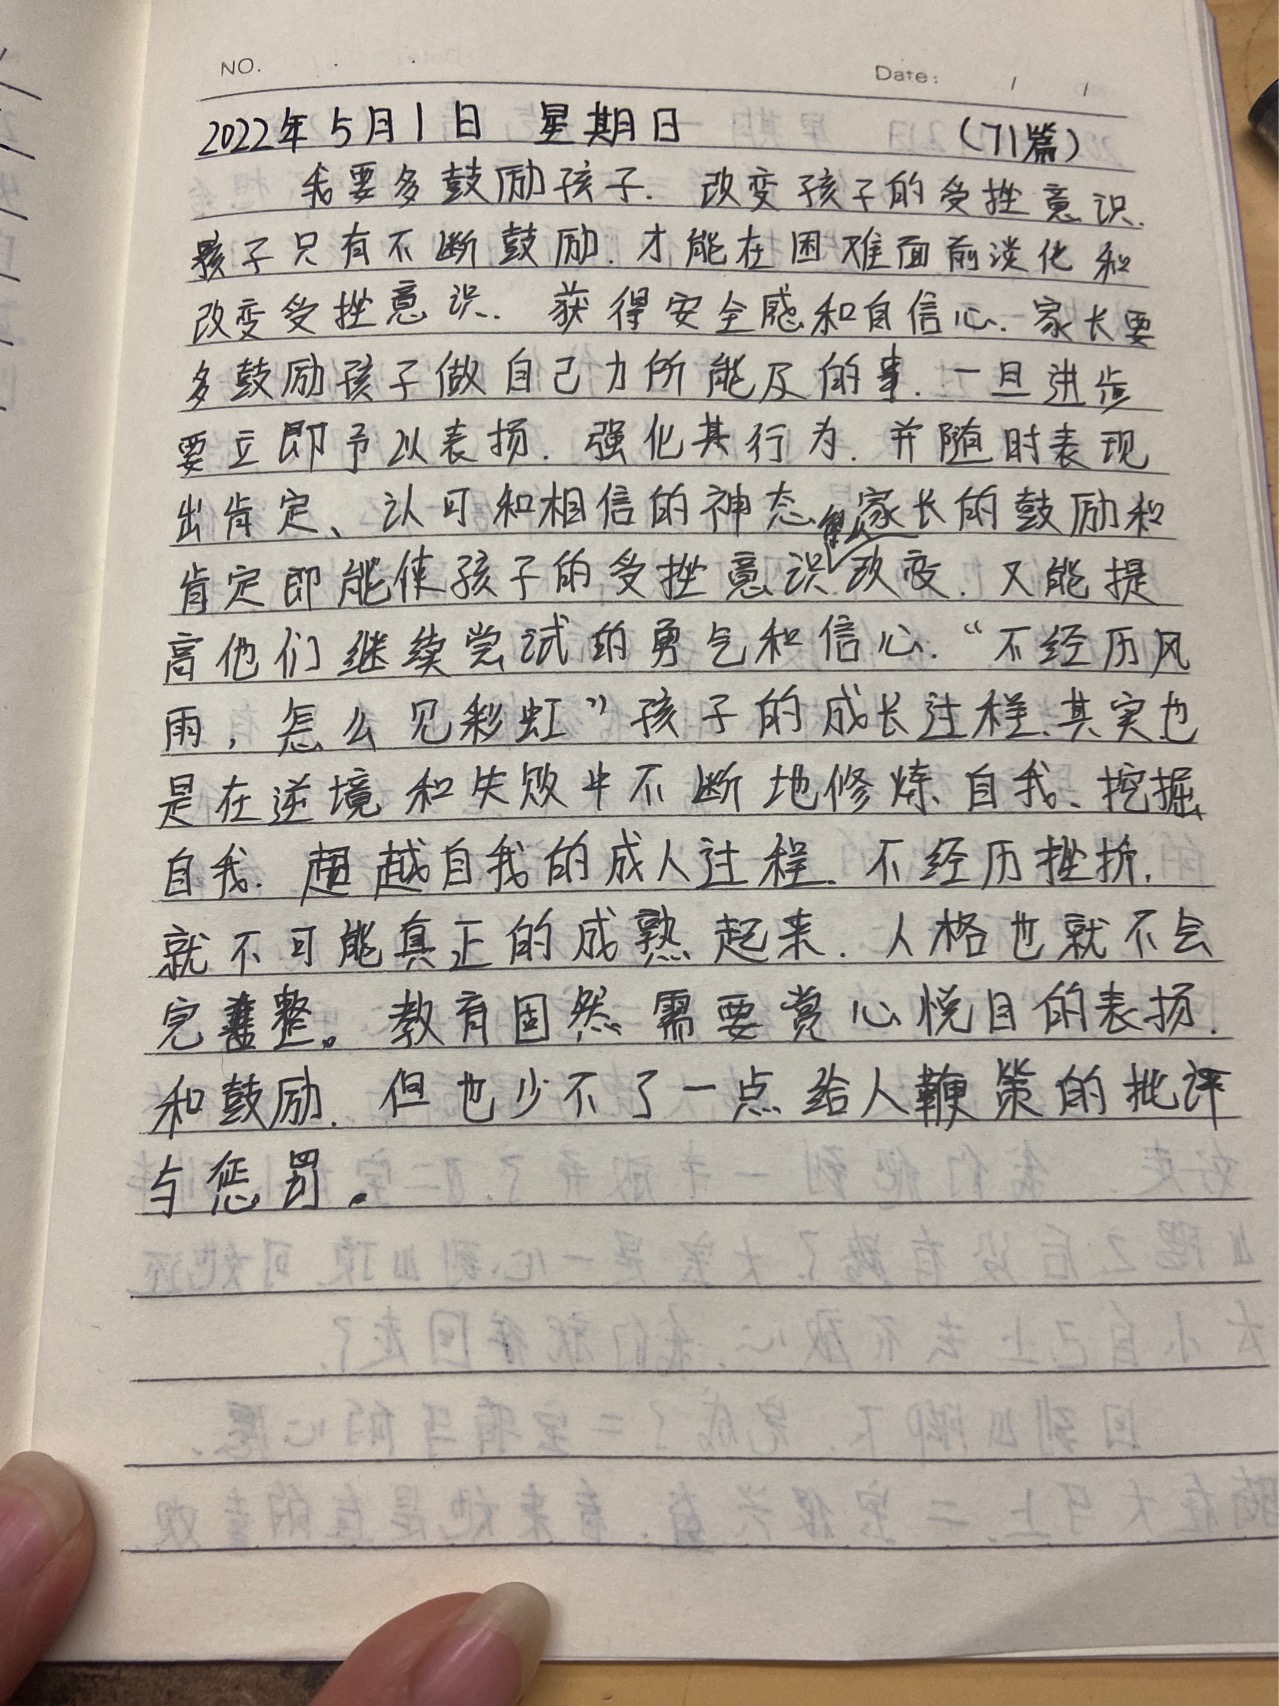 NO.
Date: / /
2022年5月1日 星期日 (71篇)
我要多鼓励孩子. 改变孩子的受挫意识.
孩子只有不断鼓励.才能在困难面前淡化和
改变受挫意识. 获得安全感和自信心.家长要
多鼓励孩子做自己力所能及的事.一旦进步
要立即予以表扬.强化其行为.并随时表现
出肯定、认可和相信的神态.家长的鼓励和
肯定即能使孩子的受挫意识改变.又能提
高他们继续尝试的勇气和信心.“不经历风
雨,怎么见彩虹”孩子的成长过程.其实也
是在逆境和失败中不断地修炼自我、挖掘
自我.超越自我的成人过程.不经历挫折.
就不可能真正的成熟起来.人格也就不会
完整。教育固然需要赏心悦目的表扬.
和鼓励.但也少不了一点给人鞭策的批评
与惩罚.